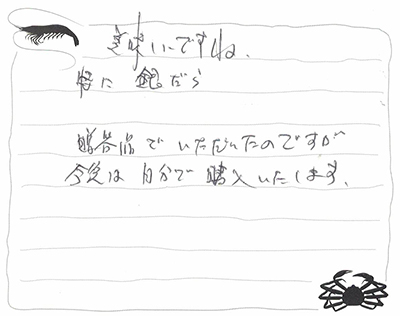 美味いですね、
特に 銀だら
贈答品でいただいたのですが
今後は自分で購入いたします、